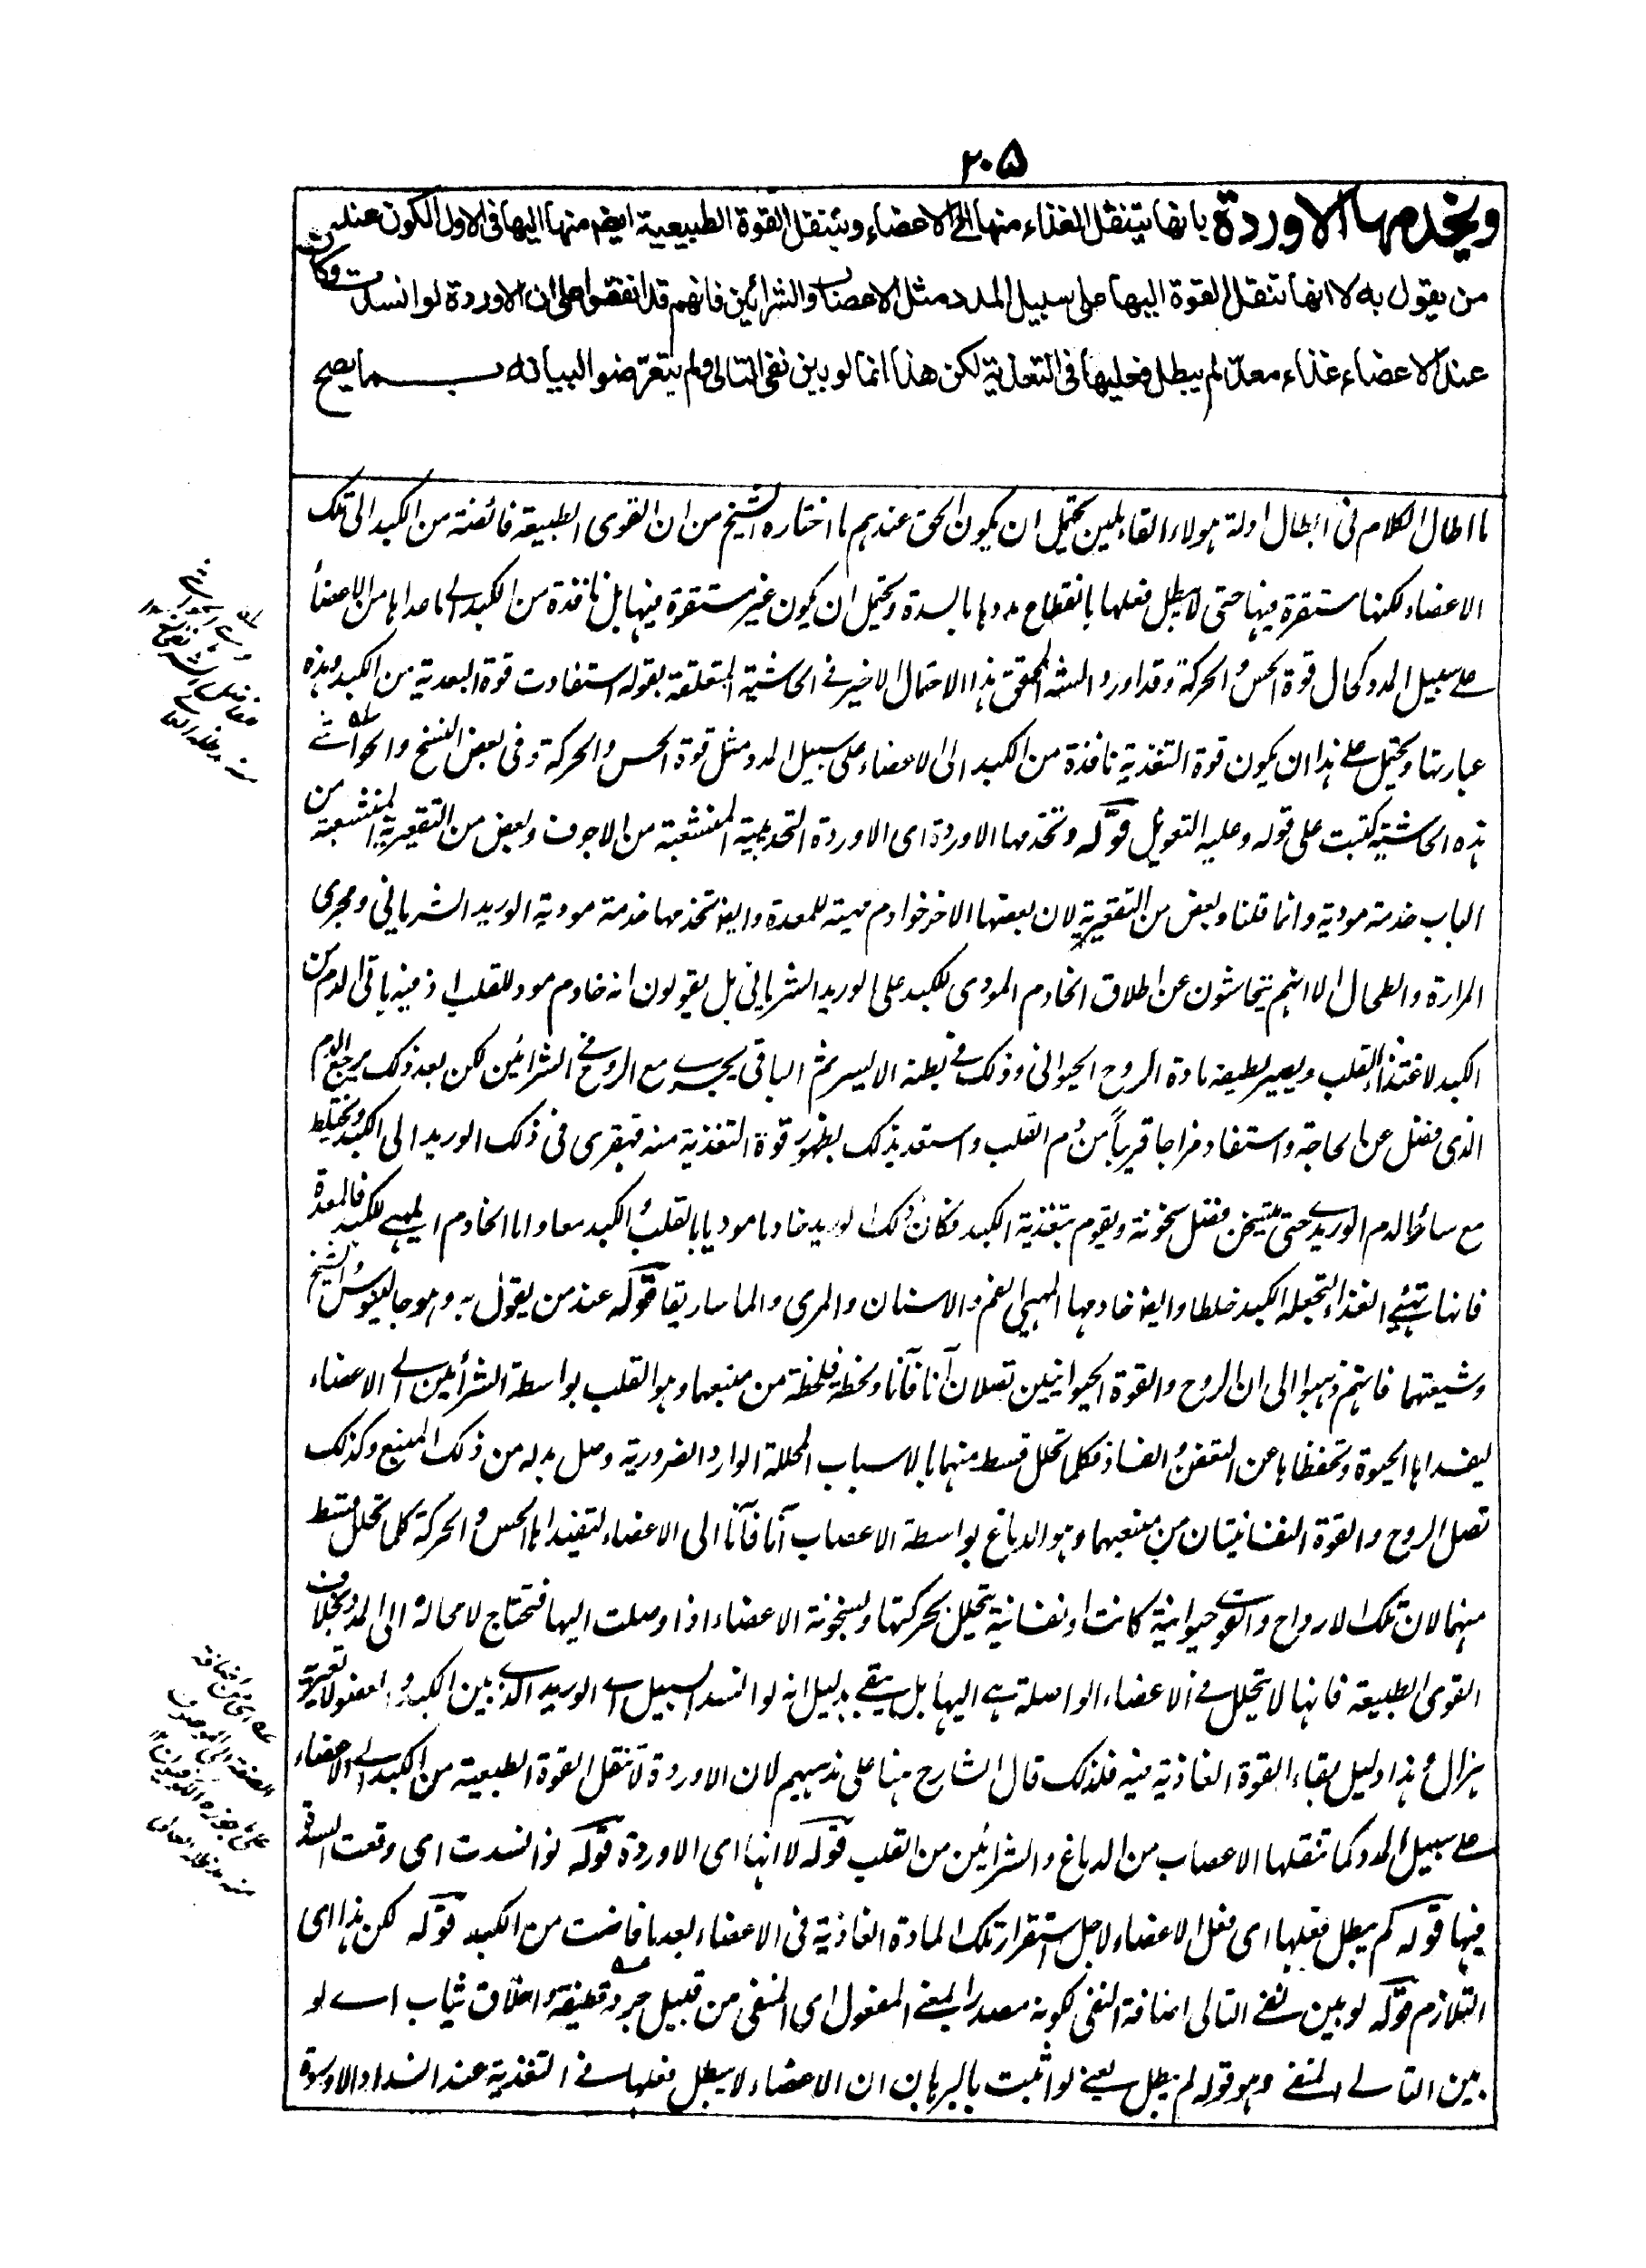 ٢٠٥
ويخدمها الاوردة بانها يتنقل الغذاء منها الى الاعضاء وينتقل القوة الطبيعية ايضا منها اليها فى الاول الكون عند
من يقول به لا انها تنقل القوة اليها على سبيل المدد مثل الاعصاب والشرائين فانهم قد اتفقوا على ان الاوردة لو انسدت وكان
عند الاعضاء غذاء معد لم يبطل فعليها فى التغذية لكن هذا انما لو بين نفى التالى ولم يتعرضوا لبيانه بما يصح
ما اطال الكلام فى ابطال ادلة هولاء القائلين يحتمل ان يكون الحق عندهم ما اختاره الشيخ من ان القوى الطبيعة فائضة من الكبد الى تلك
الاعضاء لكنها مستقرة فيها حتى لا يبطل فعلها بانقطاع مددها بالسدة ويحتمل ان يكون غير مستقرة فيها بل نافذة من الكبد الے ما عداها من الاعضاء
علے سبيل المدد كحال قوة الحس والحركة وقد اورد المحقق هذا الاحتمال الاخير فے الحاشية المتعلقة بقوله استفادت قوة البعدية من الكبد وهذه
عبارتها ويحتمل علے هذا ان يكون قوة التغذية نافذة من الكبد الى الاعضاء على سبيل المدد مثل قوة الحس والحركة وفى بعض النسخ والحواشے
هذه الحاشية كتبت على قوله وعليه التعويل قوله وتخدمها الاوردة اى الاوردة التحديبية المنشعبة من الاجوف وبعض من التقعيرية المنشعبة من
الباب خدمة مودية وانما قلنا وبعض من التقعيرية لان بعضها الاخر خوادم مهيئة للمعدة وايضا تخدمها خدمة مودية الوريد الشريانى ومجرى
المرارة والطحال الا انهم يتحاشون عن اطلاق الخادم المودى للكبد على الوريد الشريانى بل يقولون انه خادم مود للقلب اذ فيه ياتى الدم من
الكبد لاغتذاء القلب ويصير لطيفه مادة الروح الحيوانى وذلك فے بطنه الايسر ثم الباقى يجرے مع الروح فے الشرائين لكن بعد ذلك يرجع الدم
الذى فضل عن الحاجة واستفاد مزاجا قريبا من دم القلب واستعد بذلك لظهور قوة التغذية منه قهقرى فى ذلك الوريد الى الكبد ويختلط
مع سائر الدم الوريدے حتى يتسخن فضل سخونة ويقوم بتغذية الكبد فكان ذلك الوريد خادما موديا بالقلب والكبد معا واما الخادم المهيے للكبد فالمعدة
فانها تهيے الغذاء لتجعله الكبد خلطا وايضا خادمها المهيى الفم والاسنان والمرى والماساريقا قوله عند من يقول به وهو جالينوس والشيخ
وشيعتهما فانهم ذهبوا الى ان الروح والقوة الحيوانيتين تصلان آنا فآنا ولحظة فلحظة من منبعهما وهو القلب بواسطة الشرائين الے الاعضاء
ليفيداها الحيوة وتحفظاها عن التعفن والفساد فكلما تحلل قسط منهما بالاسباب المحللة الواردة الضرورية وصل بدله من ذلك المنبع وكذلك
تصل الروح والقوة النفسانيتان من منبعهما وهو الدماغ بواسطة الاعصاب آنا فآنا الى الاعضاء لتفيداها الحس والحركة كلما تحلل قسط
منهما لان تلك الارواح والقوے حيوانية كانت او نفسانية يتحلل بحركتها وبسخونة الاعضاء اذا وصلت اليها فتحتاج لا محالة الى المدد بخلاف
القوى الطبيعة فانها لا يتحلل فے الاعضاء الواصلة هے اليها بل يبقے بدليل انه لو انسد السبيل اے الوريد الذے بين الكبد والعضو لا يعتريه
هزال وهذا دليل بقاء القوة الغاذية فيه فلذلك قال الشارح هنا على مذهبهم لان الاوردة لا تنقل القوة الطبيعية من الكبد الے الاعضاء
علے سبيل المدد كما تنقلها الاعصاب من الدماغ والشرائين من القلب قوله لا انها اى الاوردة قوله لو انسدت اى وقعت السدة
فيها قوله لم يبطل فعلها اى فعل الاعضاء لاجل استقرار تلك المادة الغاذية فى الاعضاء بعد ما فاضت من الكبد قوله لكن هذا اى
التلازم قوله لو بين نفے التالى اضافة النفى كونه مصدرا بمعنے المفعول اى المنفى من قبيل جرد قطيفة واخلاق ثياب اے لو
بين التالے المنفے وهو قوله لم يبطل يعنے لو اثبت بالبرهان ان الاعضاء لا يبطل فعلها فے التغذية عند انسداد الاوردة